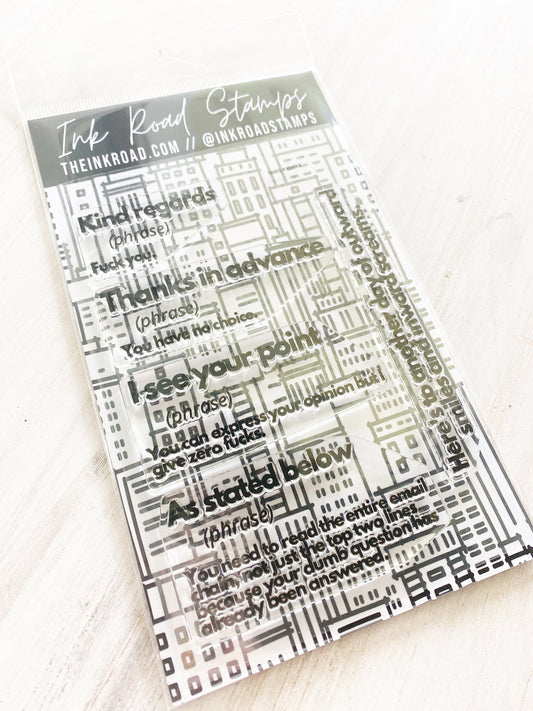 Ink Road Stamps
THEINKROAD.COM // @INKROADSTAMPS
Kind regards
(phrase)
Fuck you!
Thanks in advance
(phrase)
You have no choice.
I see your point
(phrase)
You can express your opinion but I
give zero fucks.
As stated below
(phrase)
You need to read the entire email
chain, not just the top two lines
because your dumb question has
already been answered.
Here's to another day of outward
smiles and inward screams